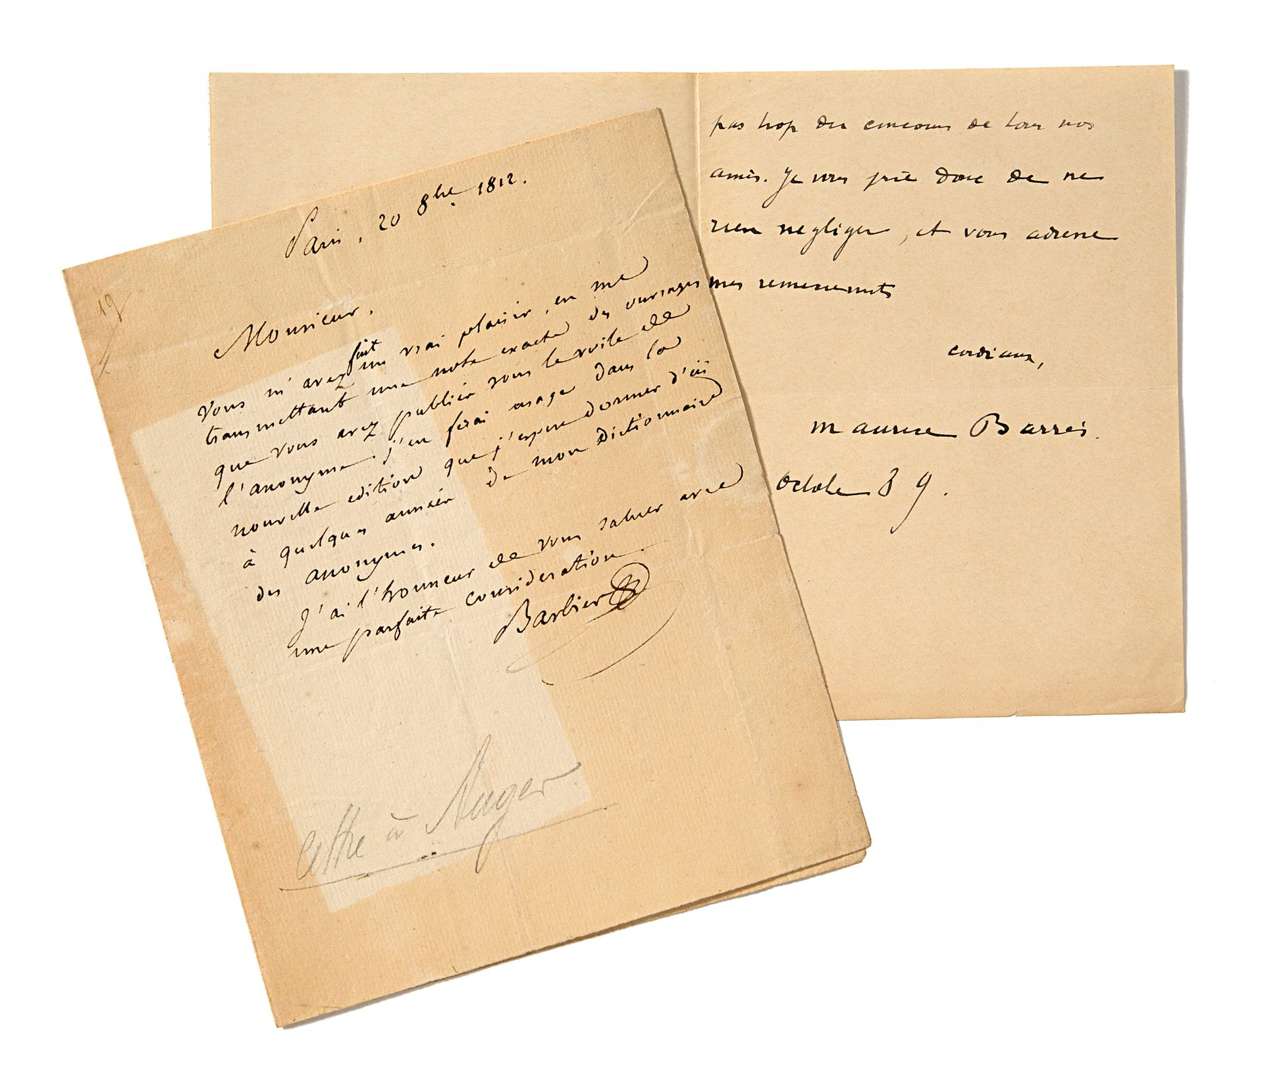 Paris, 20 8bre 1812.
19
Monsieur,
Vous m'avez fait un vrai plaisir, en me
transmettant une note exacte des ouvrages
que vous avez publiés sous le voile de
l'anonyme. j'en ferai usage dans la
nouvelle edition que j'espere donner d'ici
à quelques années de mon Dictionnaire
des anonymes.
J'ai l'honneur de vous saluer avec
une parfaite consideration.
Barbier
Lettre à Auger
pas trop du concours de tous nos
amis. Je vous prie donc de ne
rien negliger, et vous adresse
mes remerciements
cordiaux,
maurice Barrès.
octobre 89.